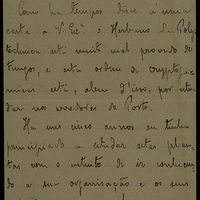 Como ha tempos disse n'uma
carta a V. Exª o Herbario da Poly
technica está muito mal provido de
fungos, e esta ordem de cryptoga-
micas está, alem d'isso, por estu
dar nos arredores do Porto.
Ha uns cinco annos eu tinha
principiado a estudar estas plan
tas com o intuito de ir conhecen
do a sua organisação e os seus